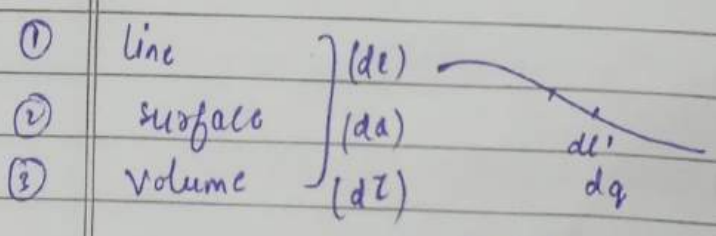 ① line (dl)
② surface (da) dl'
③ Volume (dτ) dq